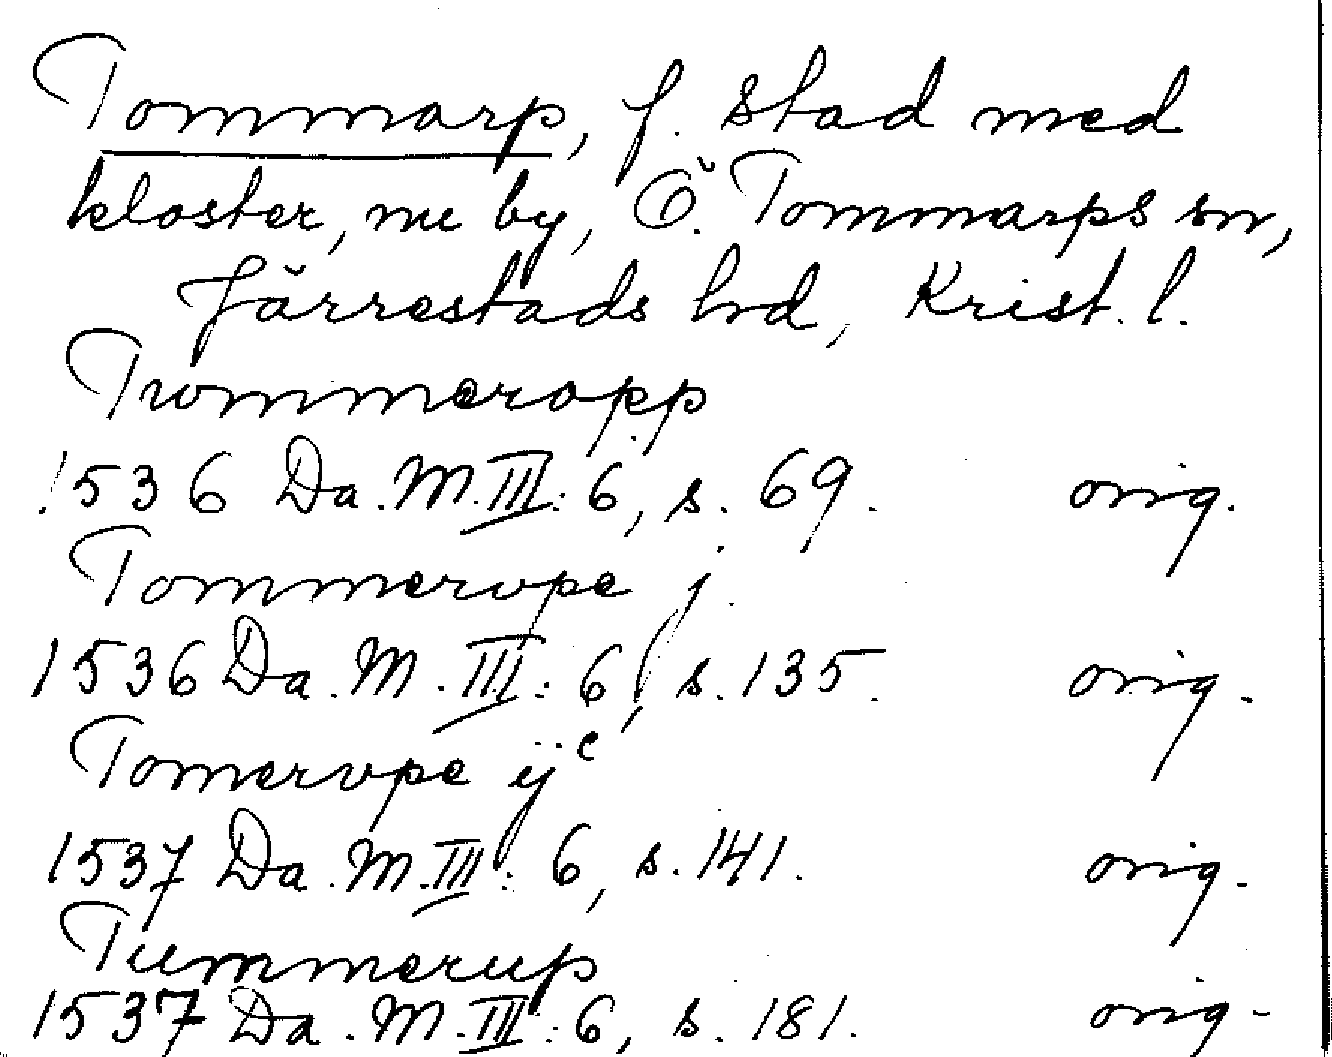 Tommarp, f. stad med
kloster, nu by, Ö. Tommarps sn,
Järrestads hd, Krist. l.
Trommeropp
1536 Da. M. III: 6, s. 69. orig.
Tommervpe j
1536 Da. M. III: 6, s. 135. orig.
Tomervpe ij c
1537 Da. M. III: 6, s. 141. orig.
Tummerup
1537 Da. M. III: 6, s. 181. orig.